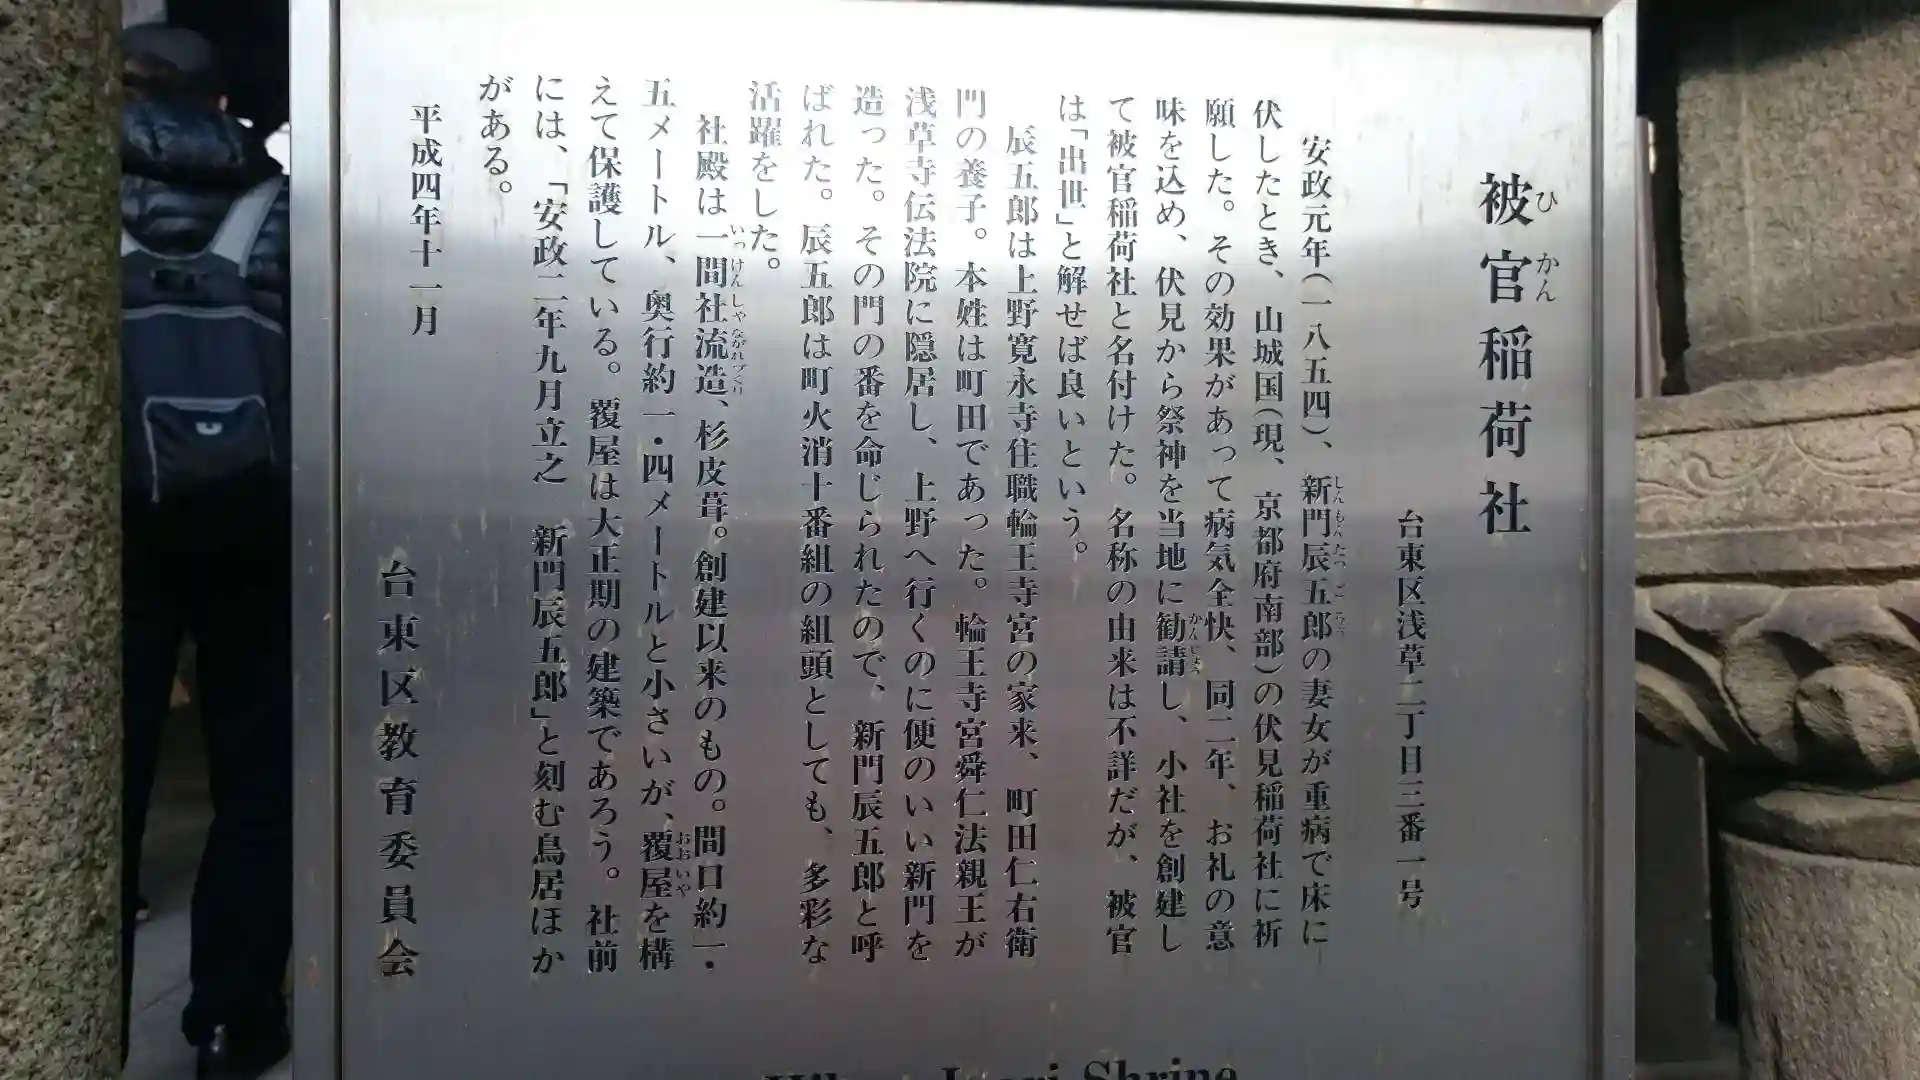 被官稲荷社
台東区浅草二丁目三番一号
安政元年(一八五四)、新門辰五郎の妻女が重病で床に
伏したとき、山城国(現、京都府南部)の伏見稲荷社に祈
願した。その効果があって病気全快、同二年、お礼の意
味を込め、伏見から祭神を当地に勧請し、小社を創建し
て被官稲荷社と名付けた。名称の由来は不詳だが、被官
は「出世」と解せば良いという。
辰五郎は上野寛永寺住職輪王寺宮の家来、町田仁右衛
門の養子。本姓は町田であった。輪王寺宮舜仁法親王が
浅草寺伝法院に隠居し、上野へ行くのに便のいい新門を
造った。その門の番を命じられたので、新門辰五郎と呼
ばれた。辰五郎は町火消十番組の組頭としても、多彩な
活躍をした。
社殿は一間社流造、杉皮葺。創建以来のもの。間口約一・
五メートル、奥行約一・四メートルと小さいが、覆屋を構
えて保護している。覆屋は大正期の建築であろう。社前
には、「安政二年九月立之 新門辰五郎」と刻む鳥居ほか
がある。
平成四年十一月
台東区教育委員会
Inari Shrine